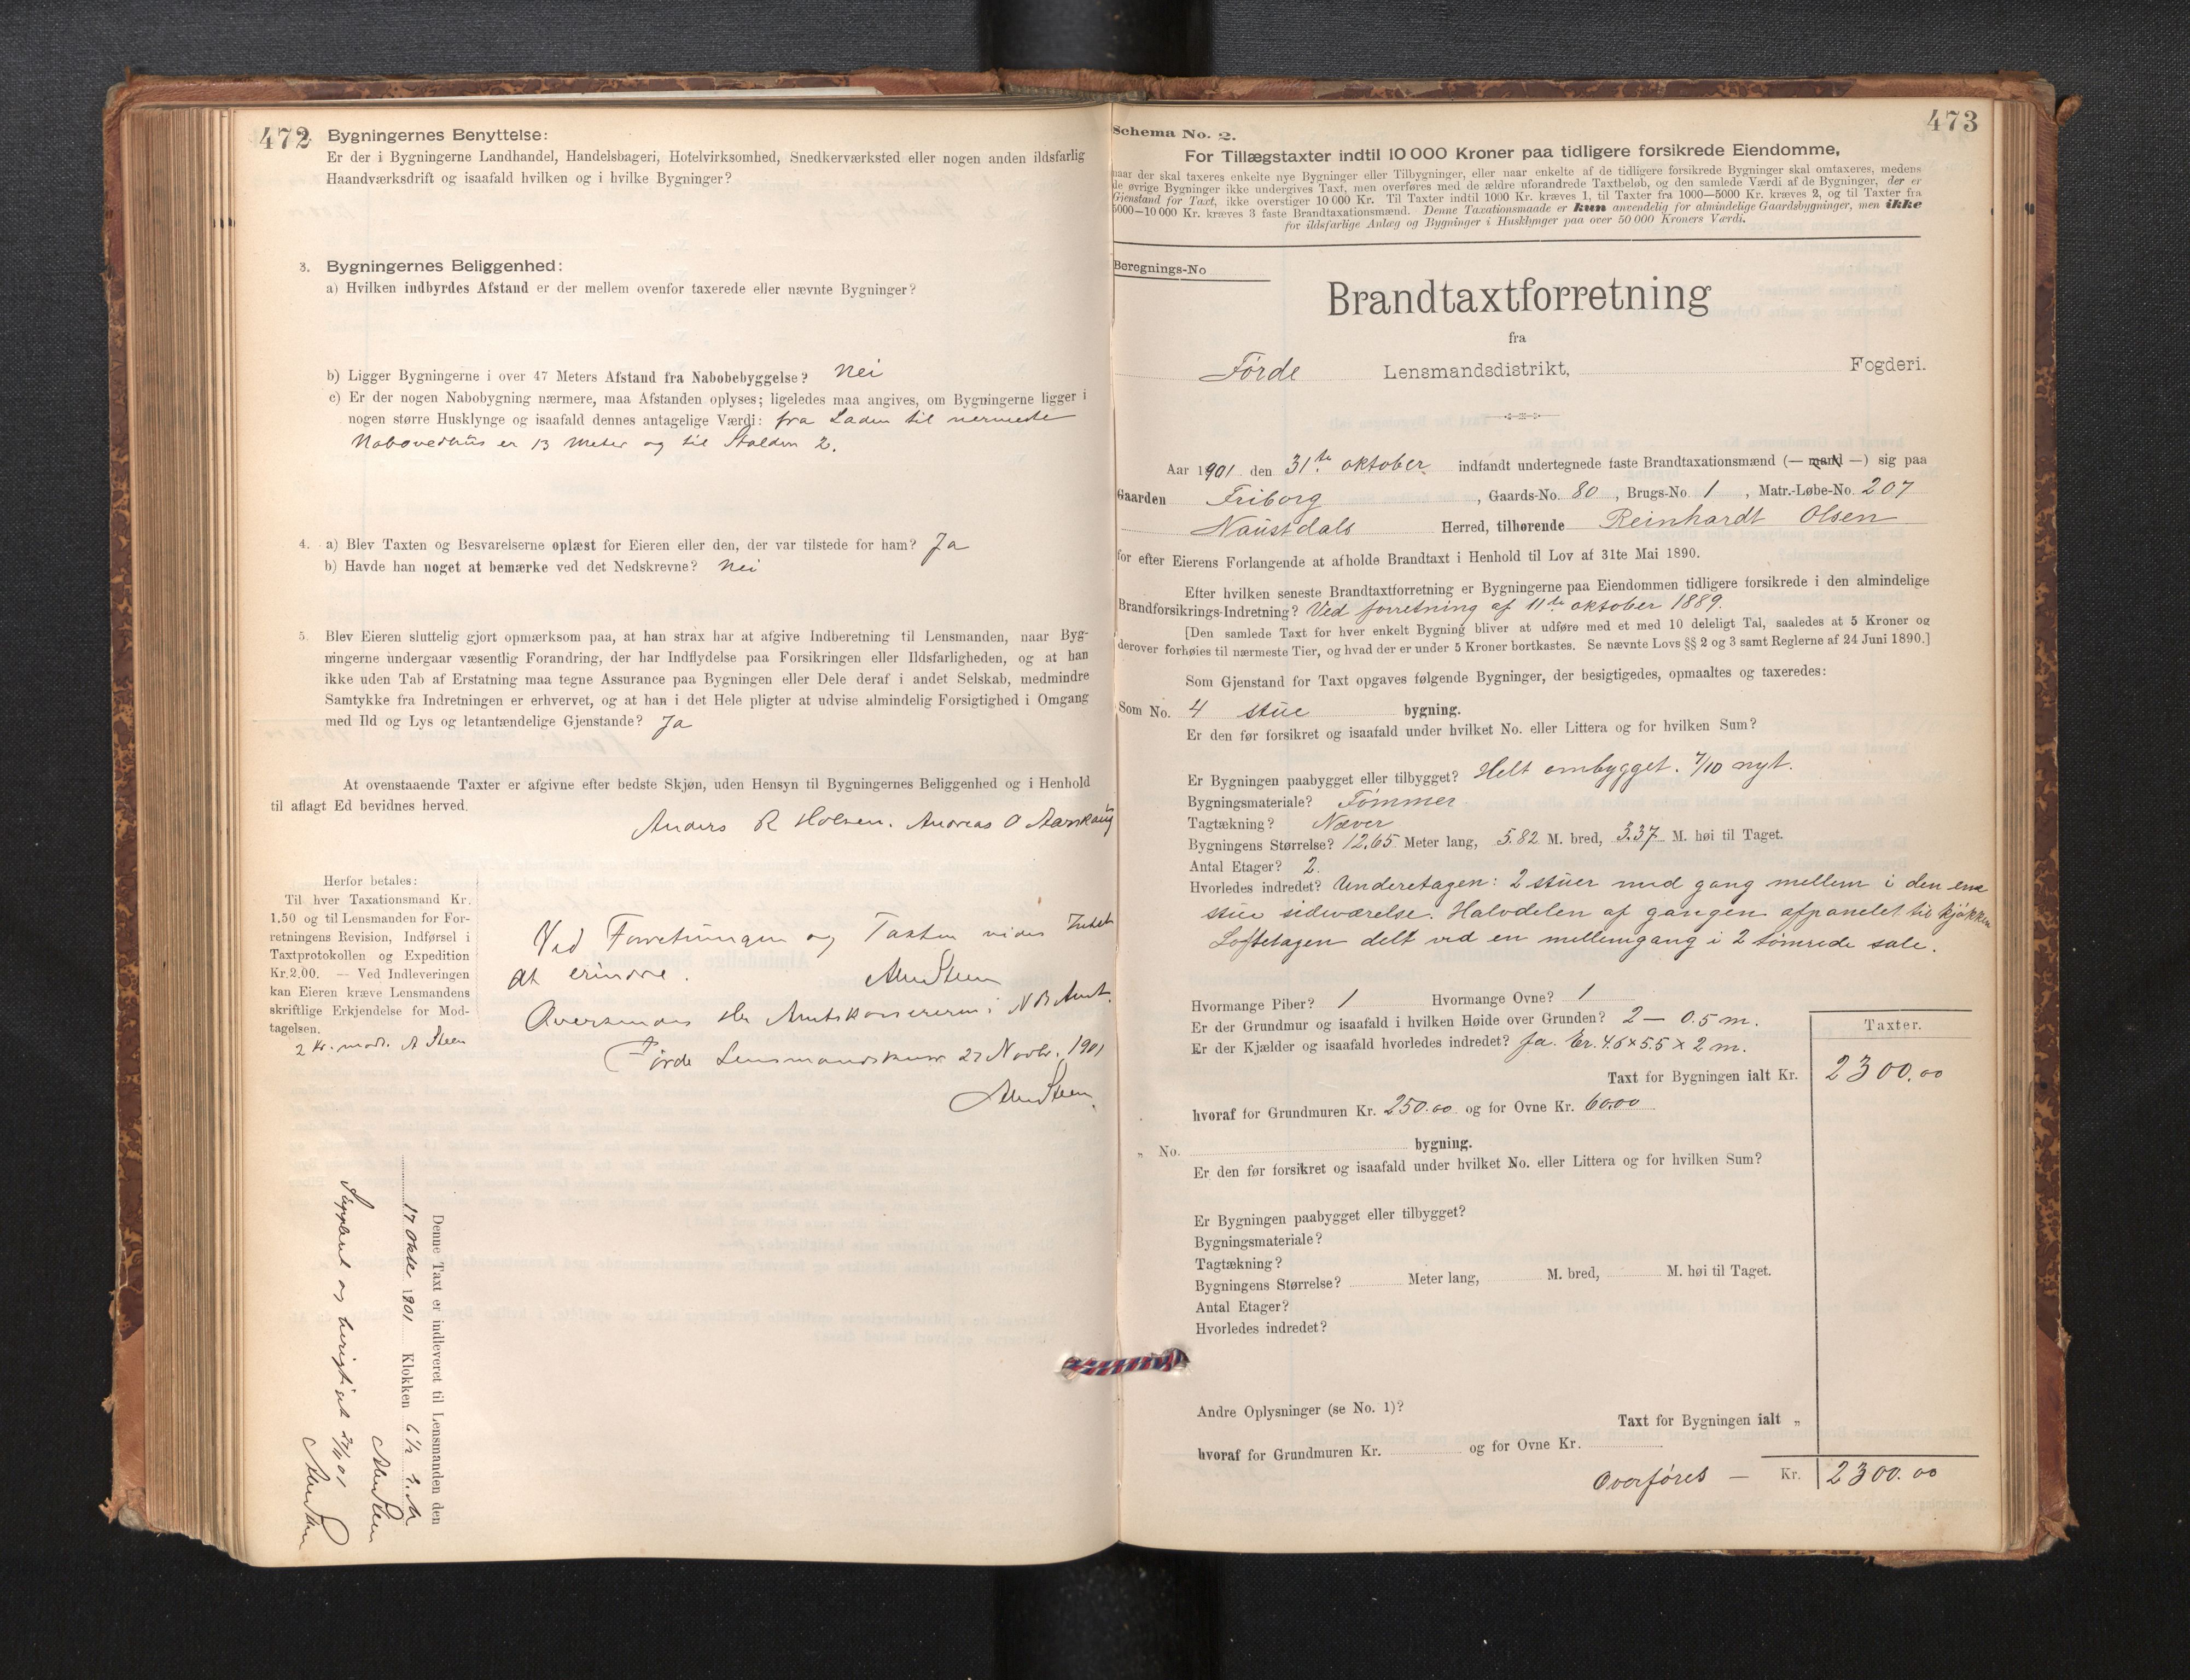 472
2. Bygningernes Benyttelse:
Er der i Bygningerne Landhandel, Handelsbageri, Hotelvirksomhed, Snedkerværksted eller nogen anden ildsfarlig
Haandværksdrift og isaafald hvilken og i hvilke Bygninger?
3. Bygningernes Beliggenhed:
a) Hvilken indbyrdes Afstand er der mellem ovenfor taxerede eller nævnte Bygninger?
b) Ligger Bygningerne i over 47 Meters Afstand fra Nabobebyggelse? Nei
c) Er der nogen Nabobygning nærmere, maa Afstanden oplyses; ligeledes maa angives, om Bygningerne ligger i
nogen større Husklynge og isaafald dennes antagelige Værdi: fra Laden til nermeste
Nabovedhus er 13 Meter og til Stalden 2.
4. a) Blev Taxten og Besvarelserne oplæst for Eieren eller den, der var tilstede for ham? Ja
b) Havde han noget at bemærke ved det Nedskrevne? Nei
5. Blev Eieren sluttelig gjort opmærksom paa, at han strax har at afgive Indberetning til Lensmanden, naar Byg-
ningerne undergaar væsentlig Forandring, der har Indflydelse paa Forsikringen eller Ildsfarligheden, og at han
ikke uden Tab af Erstatning maa tegne Assurance paa Bygningen eller Dele deraf i andet Selskab, medmindre
Samtykke fra Indretningen er erhvervet, og at han i det Hele pligter at udvise almindelig Forsigtighed i Omgang
med Ild og Lys og letantændelige Gjenstande? Ja
At ovenstaaende Taxter er afgivne efter bedste Skjøn, uden Hensyn til Bygningernes Beliggenhed og i Henhold
til aflagt Ed bevidnes herved.
Anders R Holsen. Andreas O Aarskaug
Herfor betales:
Til hver Taxationsmand Kr.
1.50 og til Lensmanden for For-
retningens Revision, Indførsel i
Taxtprotokollen og Expedition
Kr. 2.00. — Ved Indleveringen
kan Eieren kræve Lensmandens
skriftlige Erkjendelse for Mod-
tagelsen.
2 Kr. modt. A Steen
Ved Forretningen og Taxten vides Intet
at erindre.
Oversendes Hr Amtskassereren i N B Amt.
Førde Lensmandskontor 27 Novbr. 1901
Denne Taxt er indleveret til Lensmanden den
17 Oktbr 1901 Klokken 6 1/2
Suppleret og berigtiget 27/11 01
473
Schema No. 2.
For Tillægstaxter indtil 10 000 Kroner paa tidligere forsikrede Eiendomme,
naar der skal taxeres enkelte nye Bygninger eller Tilbygninger, eller naar enkelte af de tidligere forsikrede Bygninger skal omtaxeres, medens
de øvrige Bygninger ikke undergives Taxt, men overføres med de ældre uforandrede Taxtbeløb, og den samlede Værdi af de Bygninger, der er
Gjenstand for Taxt, ikke overstiger 10 000 Kr. Til Taxter indtil 1000 Kr. kræves 1, til Taxter fra 1000—5000 Kr. kræves 2, og til Taxter fra
5000—10 000 Kr. kræves 3 faste Brandtaxationsmænd. Denne Taxationsmaade er kun anvendelig for almindelige Gaardsbygninger, men ikke
for ildsfarlige Anlæg og Bygninger i Husklynger paa over 50 000 Kroners Værdi.
Beregnings-No
Brandtaxtforretning
fra
Førde Lensmandsdistrikt, Fogderi.
Aar 1901 den 31te oktober indfandt undertegnede faste Brandtaxationsmænd (— mand —) sig paa
Gaarden Friborg, Gaards-No. 80, Brugs-No. 1, Matr.-Løbe-No. 207
Naustdals Herred, tilhørende Reinhardt Olsen
for efter Eierens Forlangende at afholde Brandtaxt i Henhold til Lov af 31te Mai 1890.
Efter hvilken seneste Brandtaxtforretning er Bygningerne paa Eiendommen tidligere forsikrede i den almindelige
Brandforsikrings-Indretning? Ved forretning af 11te oktober 1889.
[Den samlede Taxt for hver enkelt Bygning bliver at udføre med et med 10 deleligt Tal, saaledes at 5 Kroner og
derover forhøies til nærmeste Tier, og hvad der er under 5 Kroner bortkastes. Se nævnte Lovs §§ 2 og 3 samt Reglerne af 24 Juni 1890.]
Som Gjenstand for Taxt opgaves følgende Bygninger, der besigtigedes, opmaaltes og taxeredes:
Som No. 4 stue bygning.
Er den før forsikret og isaafald under hvilket No. eller Littera og for hvilken Sum?
Er Bygningen paabygget eller tilbygget? Helt ombygget. 7/10 nyt.
Bygningsmateriale? Tømmer
Tagtækning? Næver
Bygningens Størrelse? 12,65 Meter lang, 5.82 M. bred, 3.37 M. høi til Taget.
Antal Etager? 2.
Hvorledes indredet? Underetagen: 2 stuer med gang mellem i den ene
stue sideværelse. Halvdelen af gangen afpanelet til kjøkken
Loftetagen delt ved en mellemgang i 2 tømrede sale.
Hvormange Piber? 1 Hvormange Ovne? 1
Er der Grundmur og isaafald i hvilken Høide over Grunden? 2 — 0.5 m.
Er der Kjælder og isaafald hvorledes indredet? Ja. Er. 4.6 x 5.5 x 2 m.
Taxter.
Taxt for Bygningen ialt Kr. 2300.00
hvoraf for Grundmuren Kr. 250.00 og for Ovne Kr. 60.00
„ No. bygning.
Er den før forsikret og isaafald under hvilket No. eller Littera og for hvilken Sum?
Er Bygningen paabygget eller tilbygget?
Bygningsmateriale?
Tagtækning?
Bygningens Størrelse? Meter lang, M. bred, M. høi til Taget.
Antal Etager?
Hvorledes indredet?
Andre Oplysninger (se No. 1)?
Taxt for Bygningen ialt „
hvoraf for Grundmuren Kr. og for Ovne Kr.
Overføres — Kr. 2300.00